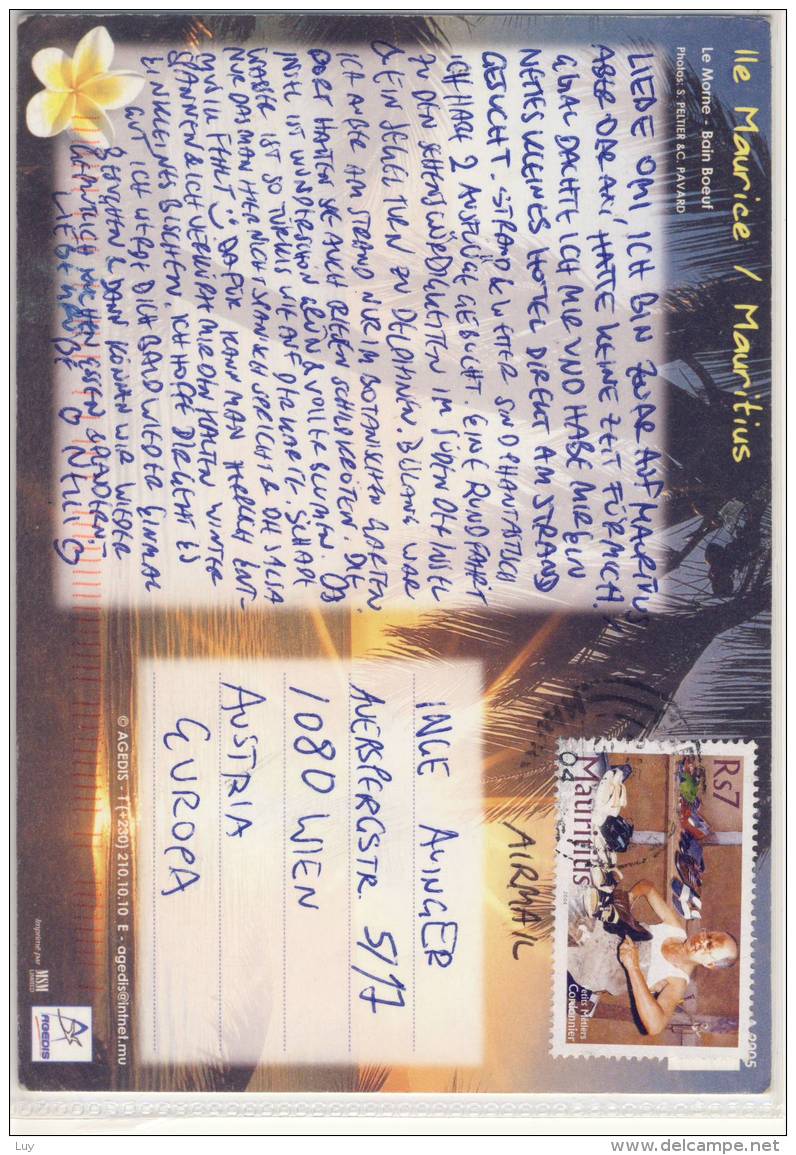 Ile Maurice / Mauritius
Le Morne - Bain Boeuf
Photos: S. PELTIER & C. PAVARD
LIEBE OMI ICH BIN ZWAR AUF MAURITIUS,
ABER DER AXI HATTE KEINE ZEIT FÜR MICH.
EGAL DACHTE ICH MIR UND HABE MIR EIN
NETTES KLEINES HOTEL DIREKT AM STRAND
GESUCHT. STRAND & WETTER SIND PHANTASTISCH
ICH HABE 2 AUSFLÜGE GEBUCHT. EINE RUNDFAHRT
ZU DEN SEHENSWÜRDIGKEITEN IM SÜDEN DER INSEL
& EIN SEGELTURN ZU DELPHINEN. BISLANG WAR
ICH AUßER AM STRAND NUR IM BOTANISCHEN GARTEN
DORT HATTEN SIE AUCH RIESEN SCHILDKRÖTEN. DIE
INSEL IST WUNDERSCHÖN GRÜN & VOLLER BLUMEN. DAS
WASSER IST SO TÜRKIS WIE AUF DER KARTE. SCHADE
NUR DAS MAN HIER NICHT SPANISCH SPRICHT & DIE SALSA
MUSIK FEHLT DAFÜR KANN MAN HERRLICH ENT-
SPANNEN & ICH VERKÜRZE MIR DEN KALTEN WINTER
EIN KLEINES BISCHEN. ICH HOFFE DIR GEHT ES
GUT ICH WERDE DICH BALD WIEDER EINMAL
BESUCHEN & DANN KÖNNEN WIR WIEDER
GEMÜTLICH KUCHEN ESSEN
LIEBE GRÜßE NELLI
AIRMAIL
INGE AUINGER
AUERSPERGSTR. 5/17
1080 WIEN
AUSTRIA
EUROPA
Rs7
Mauritius
Petits Métiers
Cordonnier
2005
04
© AGEDIS - T (+230) 210.10.10 E - agedis@intnet.mu
Imprimé par MSM LIMITED
AGEDIS
Luy
www.delcampe.net